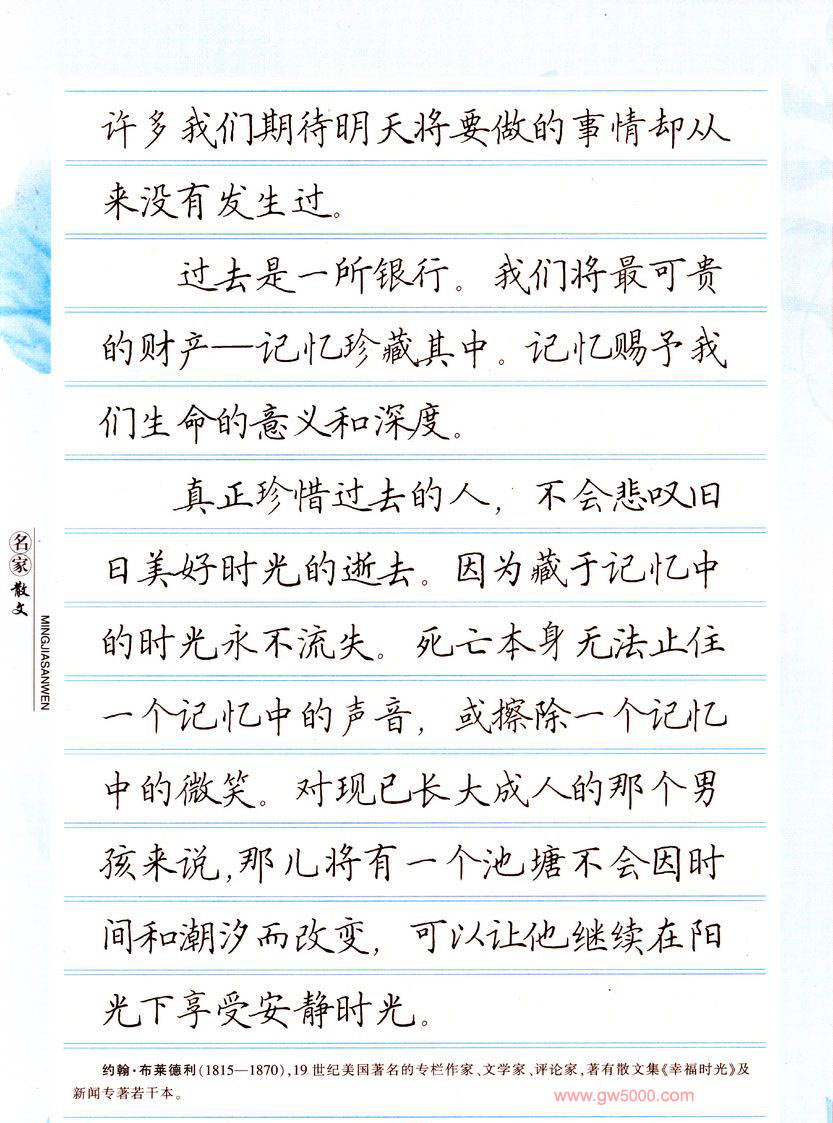 许多我们期待明天将要做的事情却从
来没有发生过。
过去是一所银行。我们将最可贵
的财产——记忆珍藏其中。记忆赐予我
们生命的意义和深度。
真正珍惜过去的人，不会悲叹旧
日美好时光的逝去。因为藏于记忆中
的时光永不流失。死亡本身无法止住
一个记忆中的声音，或擦除一个记忆
中的微笑。对现已长大成人的那个男
孩来说，那儿将有一个池塘不会因时
间和潮汐而改变，可以让他继续在阳
光下享受安静时光。
名家散文
MINGJIASANWEN
约翰·布莱德利(1815—1870),19世纪美国著名的专栏作家、文学家、评论家,著有散文集《幸福时光》及
新闻专著若干本。
www.gw5000.com